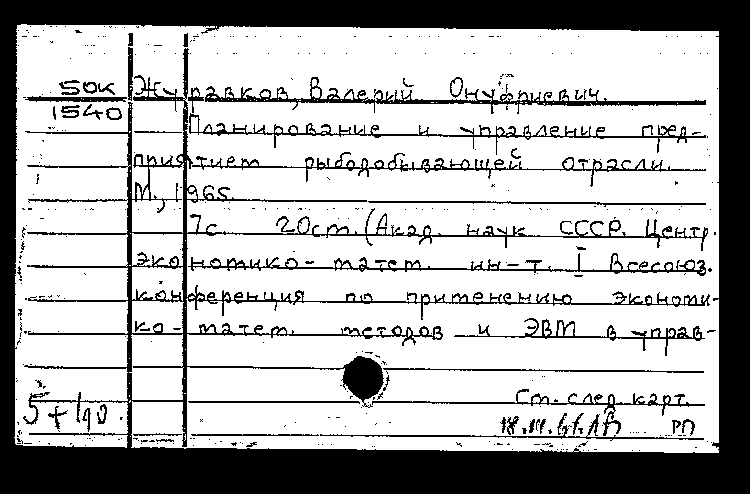 50К Журавков, Валерий Онуфриевич.
1540 Планирование и управление пред-
приятием рыбодобывающей отрасли.
М., 1965.
7с 20см. (Акад. наук СССР. Центр.
экономико-матем. ин-т. I Всесоюз.
конференция по применению экономи-
ко-матем. методов и ЭВМ в управ-
См. след. карт.
РП